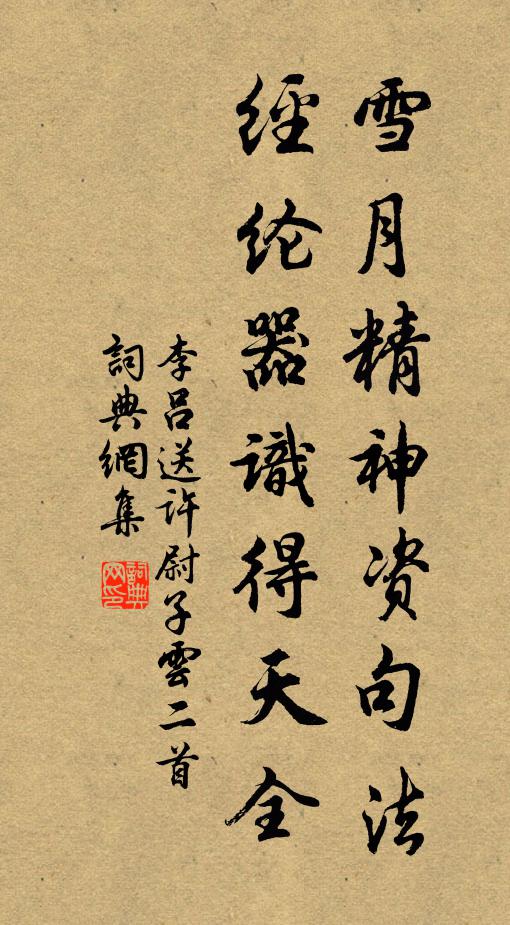 雪月精神资句法
经纶器識得天全
李吕送許尉子雲二首
詞典網集
詞典网印